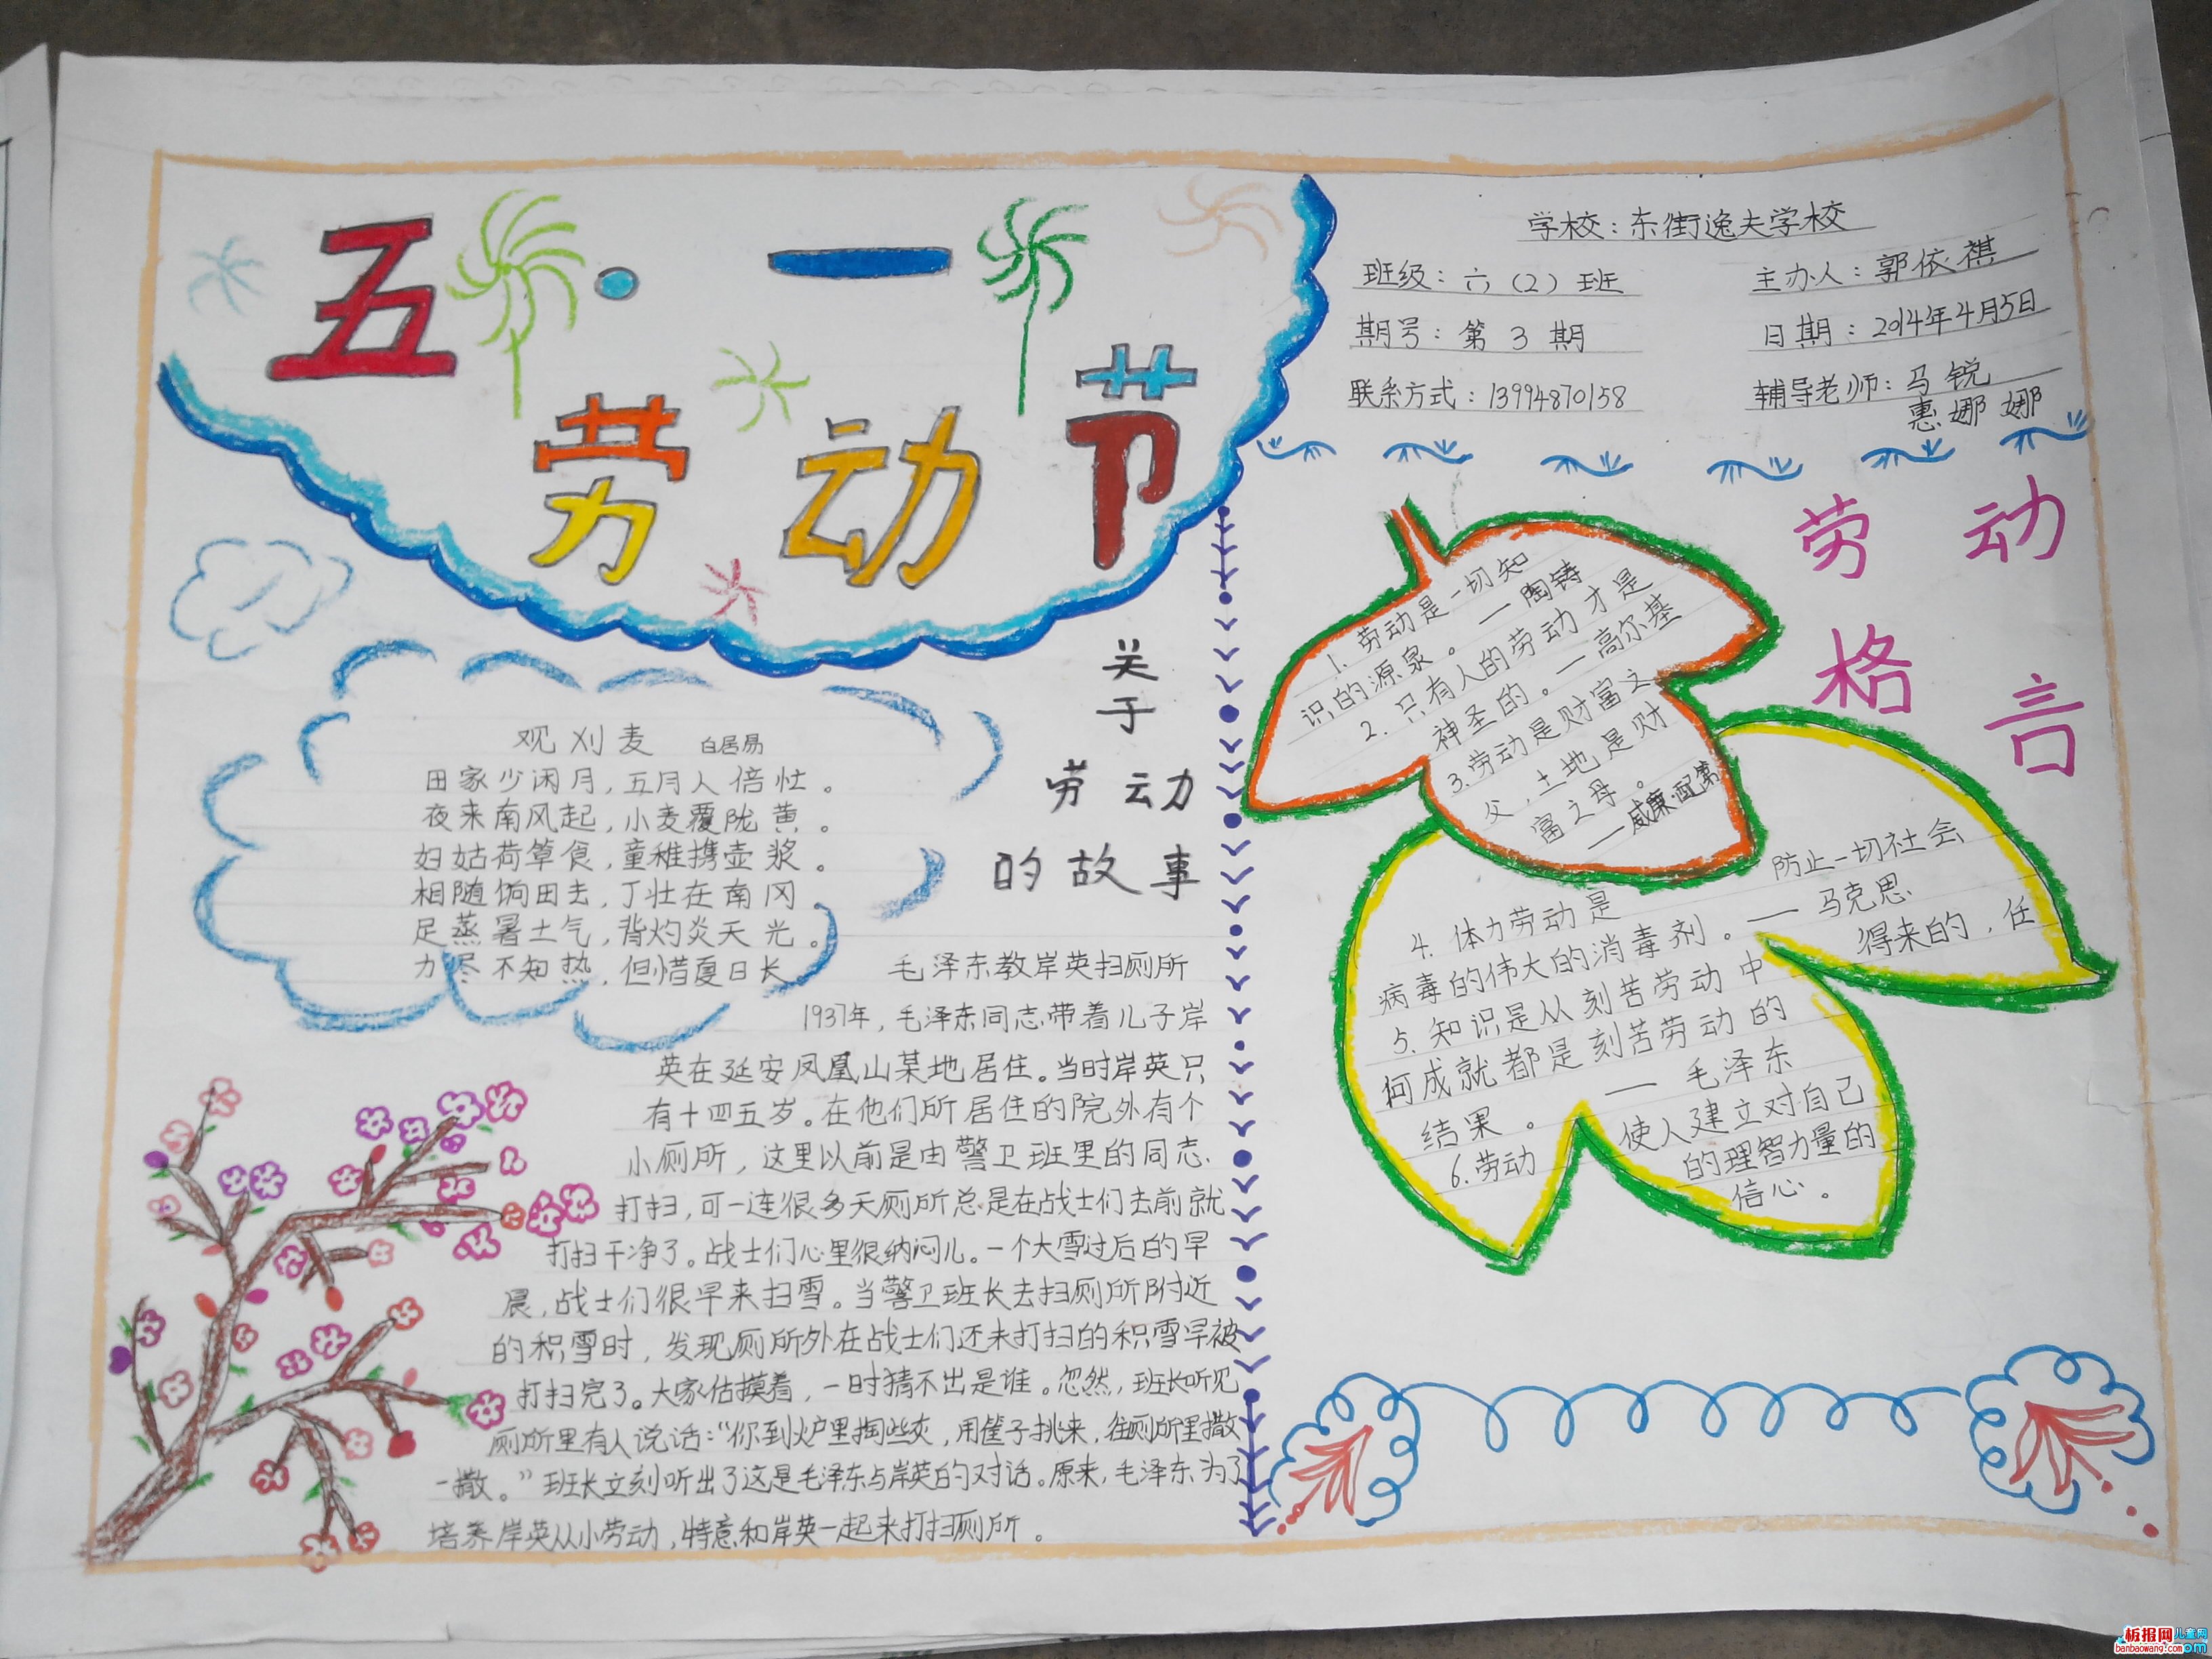 五·一
劳动节
学校：东街逸夫学校
班级：六（2）班
主办人：郭依祺
期号：第3期
日期：2014年4月5日
联系方式：13994870158
辅导老师：马锐
惠娜娜
观刈麦 白居易
田家少闲月，五月人倍忙。
夜来南风起，小麦覆陇黄。
妇姑荷箪食，童稚携壶浆。
相随饷田去，丁壮在南冈
足蒸暑土气，背灼炎天光。
力尽不知热，但惜夏日长
关
于
劳动
的故事
毛泽东教岸英扫厕所
1937年，毛泽东同志带着儿子岸
英在延安凤凰山某地居住。当时岸英只
有十四五岁。在他们所居住的院外有个
小厕所，这里以前是由警卫班里的同志
打扫，可一连很多天厕所总是在战士们去前就
打扫干净了。战士们心里很纳闷儿。一个大雪过后的早
晨，战士们很早来扫雪。当警卫班长去扫厕所附近
的积雪时，发现厕所外在战士们还未打扫的积雪早被
打扫完了。大家估摸着，一时猜不出是谁。忽然，班长听见
厕所里有人说话：“你到炉里掏些灰，用筐子挑来，往厕所里撒
一撒。”班长立刻听出了这是毛泽东与岸英的对话。原来，毛泽东为了
培养岸英从小劳动，特意和岸英一起来打扫厕所。
劳动
格言
1. 劳动是一切知
识的源泉。—陶铸
2. 只有人的劳动才是
神圣的。—高尔基
3. 劳动是财富之
父，土地是财
富之母。
—威廉配第
4. 体力劳动是 防止一切社会
病毒的伟大的消毒剂。—马克思
5. 知识是从刻苦劳动中 得来的，任
何成就都是刻苦劳动的
结果。—毛泽东
6. 劳动 使人建立对自己
的理智力量的
信心。
板报网儿童网
banbaowang.com